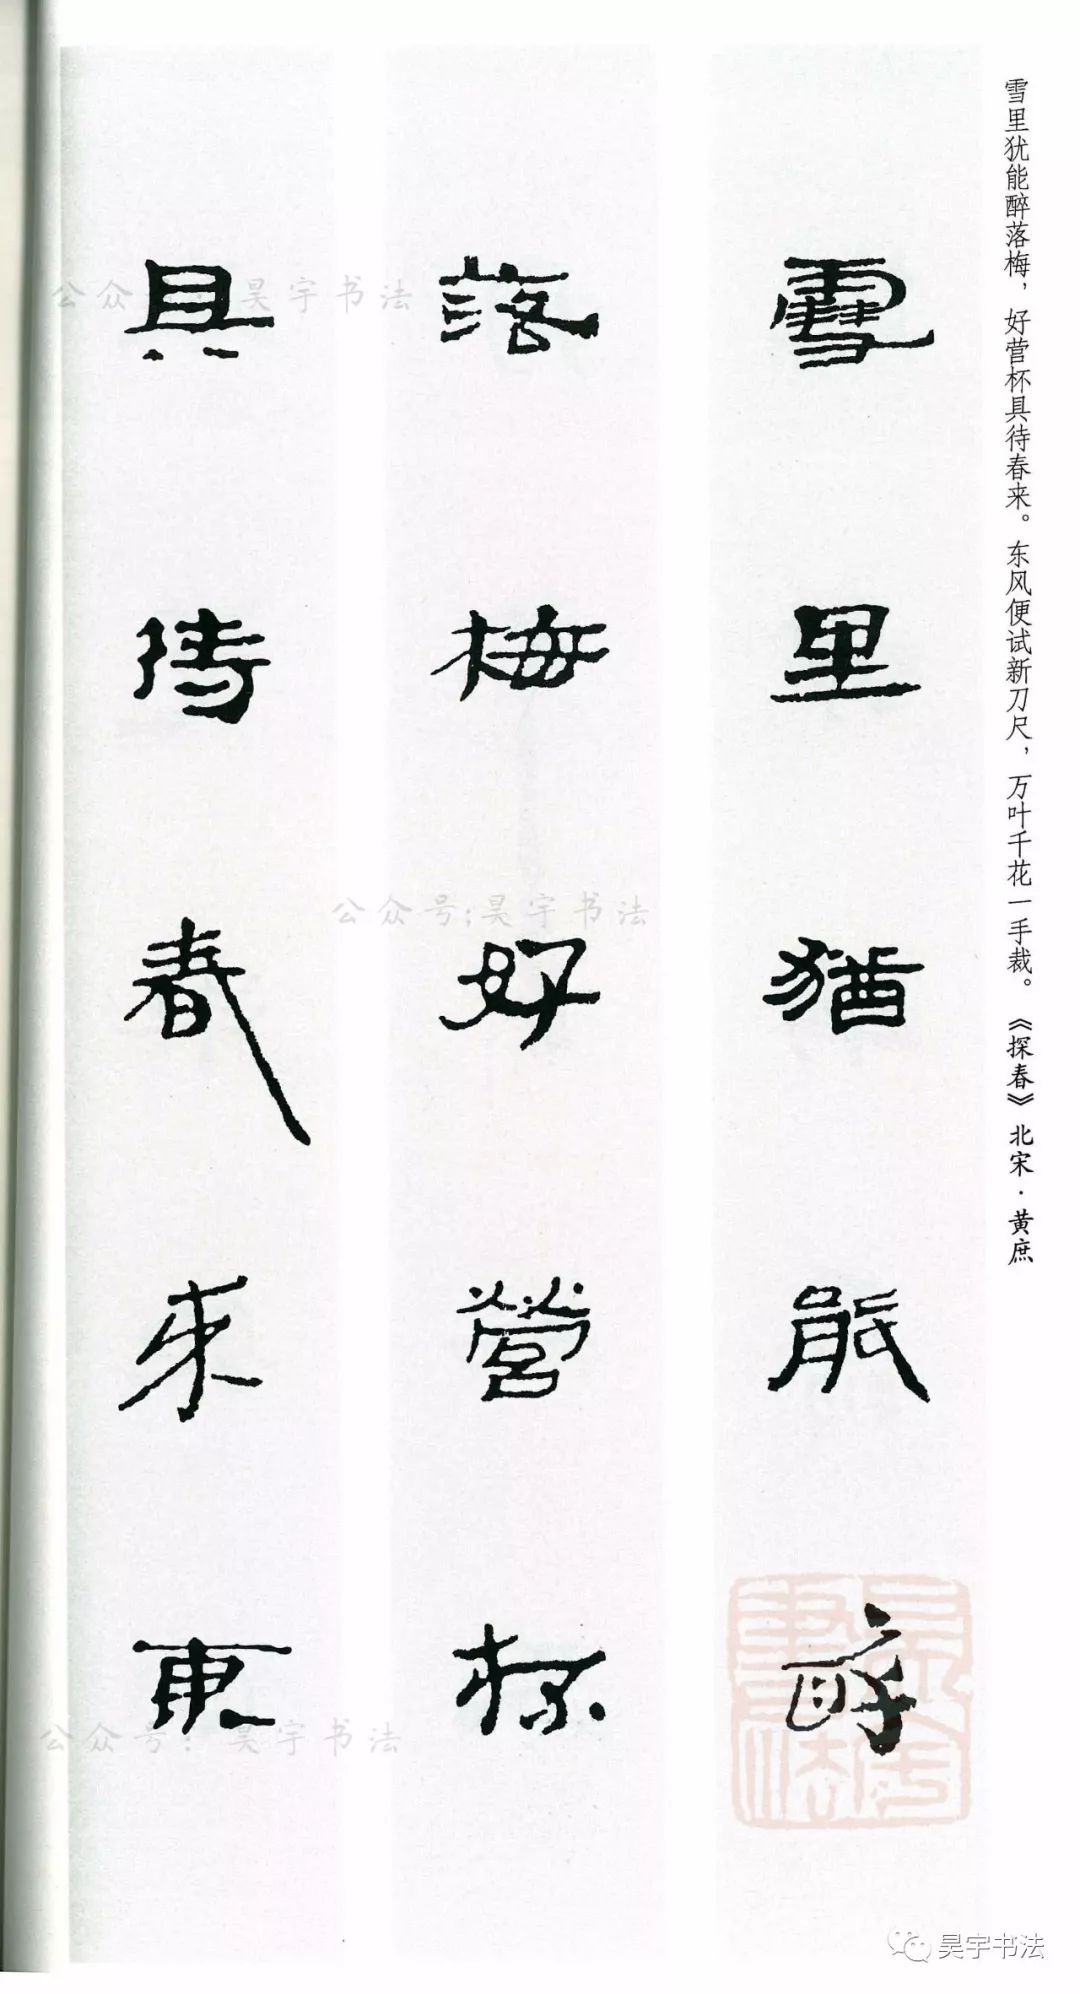 雪里犹能醉落梅，好营杯具待春来。东风便试新刀尺，万叶千花一手裁。《探春》北宋·黄庶
雪里猶能醉
落梅好營杯
具待春來東
公众号：昊宇书法
公众号：昊宇书法
公众号：昊宇书法
昊宇書法
昊宇书法